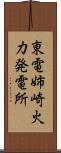 東電姉崎火
力発電所